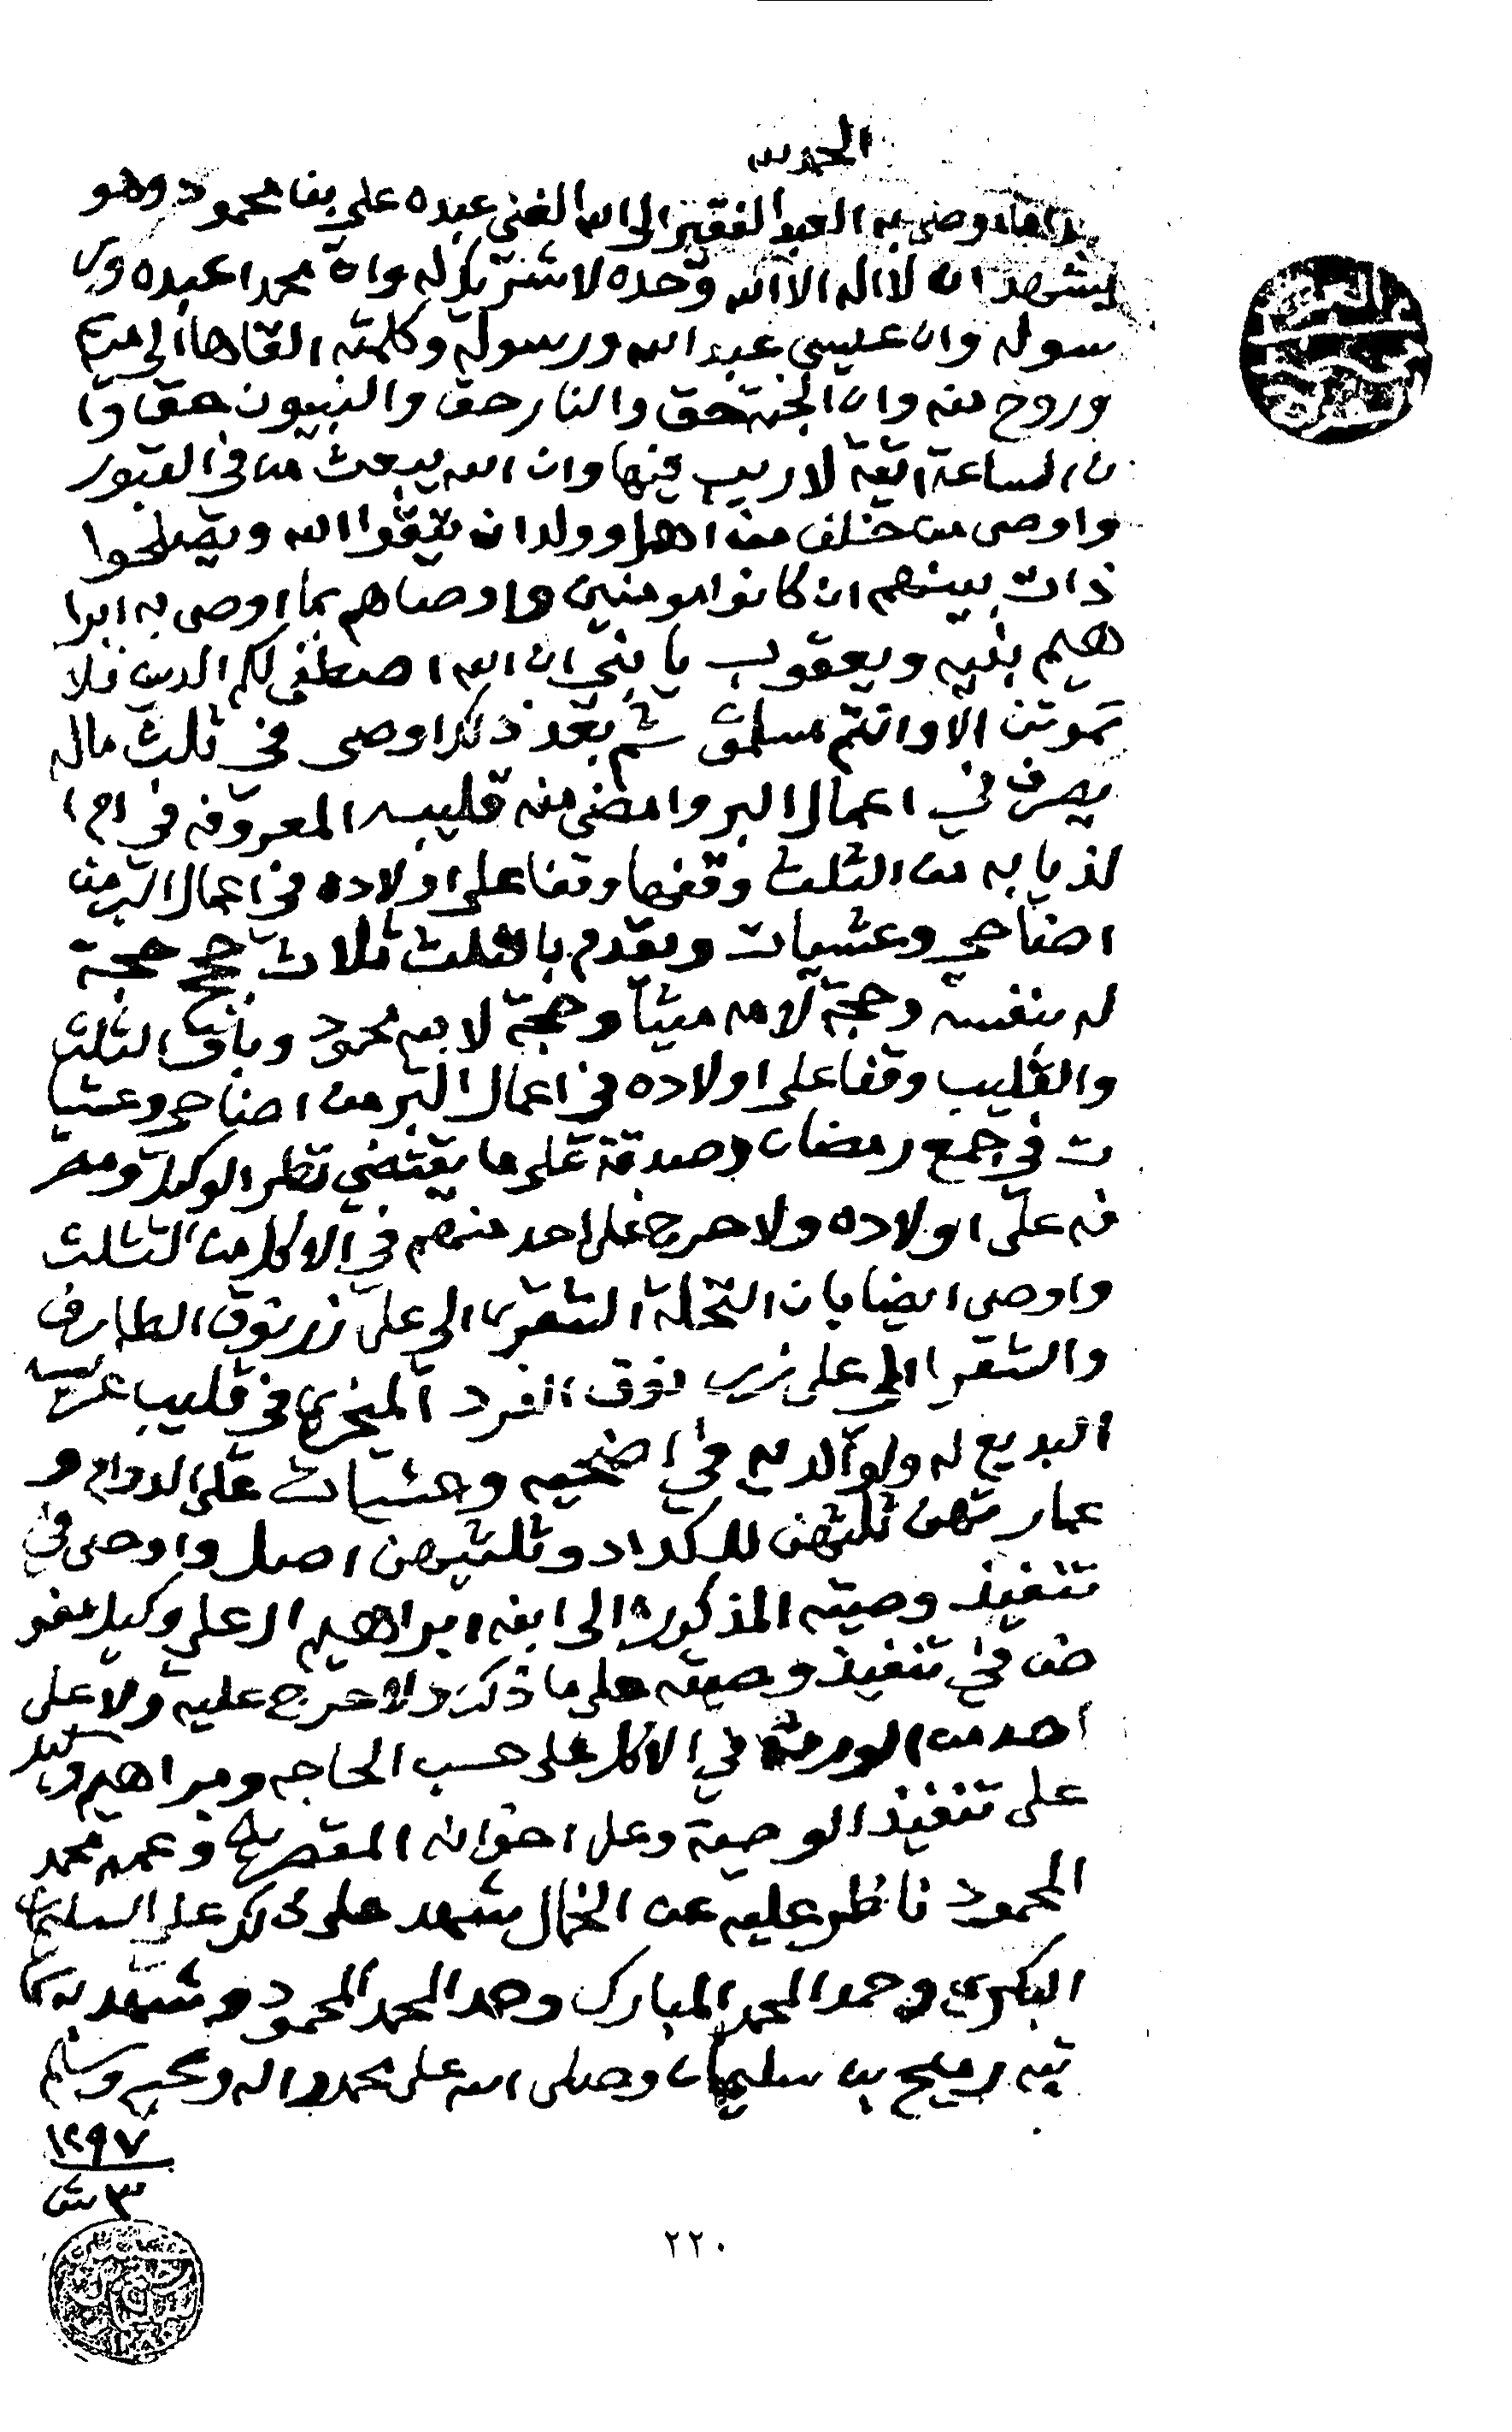 الحمد لله
هذا ما اوصى به العبد الفقير الى الله الغني عبده علي بن محمود وهو
يشهد ان لا اله الا الله وحده لا شريك له وان محمدا عبده ور
سوله وان عيسى عبد الله ورسوله وكلمته القاها الى مريم
وروح منه وان الجنة حق والنار حق والنبيون حق وا
ن الساعة اتية لا ريب فيها وان الله يبعث من في القبور
واوصى من خلف من اهل وولد ان يتقوا الله ويصلحوا
ذات بينهم ان كانوا مومنين واوصاهم بما اوصى به ابرا
هيم بنيه ويعقوب يا بني ان الله اصطفى لكم الدين فلا
تموتن الا وانتم مسلمون ثم بعد ذلك اوصى في ثلث ماله
يصرف في اعمال البر وامضى منه قليبه المعروفه في ام ا
لذيابه من الثلث وقفها وقفا على اولاده في اعمال البر من
اضاحي وعشيات ويقدم بالثلث ثلاث حجج حجة
له بنفسه وحجة لامه ميثا وحجة لابيه محمود وباقي الثلث
والقليب وقفا على اولاده في اعمال البر من اضاحي وعشيا
ت في جمع رمضان وصدقة على ما يقتضي نظر الوكيل ومصر
فه على اولاده ولا حرج على احد منهم في الاكل من الثلث
واوصى ايضا بان النخلة الشقرى الى على زرنوق الطارف
والشقرا الى على زرنوق الفرد في قليب
البديع له ولوالديه في اضحيه وعشيات على الدوام و
عمارتهن ثلثهن للكداد وثلثيهن اصل واوصى في
تنفيذ وصيته المذكورة الى ابنه ابراهيم العلي وكيل مفو
ض في تنفيذ وصيته على ما ذكر ولا حرج عليه ولا على
احد من الورثة في الاكل على حسب الحاجه وبراهيم وكيل
على تنفيذ الوصية وعلى اخوانه المقصرين وعمه محمد
المحمود ناظر عليه عن الخمال شهد على ذلك علي السليمان
البكري وحمد المحمد المبارك وحمد المحمد المحمود وشهد به كا
تبه رميح بن سليمان وصلى الله على محمد واله وصحبه وسلم
١٢٩٧
٣ ش
٢٢٠